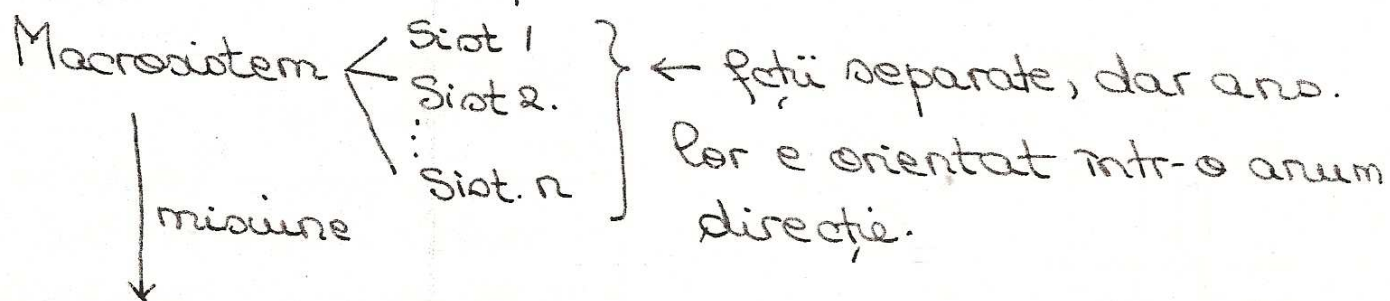 Macrosistem
Sist 1
Sist 2.
⋮
Sist. n
← fcții separate, dar ans.
lor e orientat într-o anum
direcție.
misiune